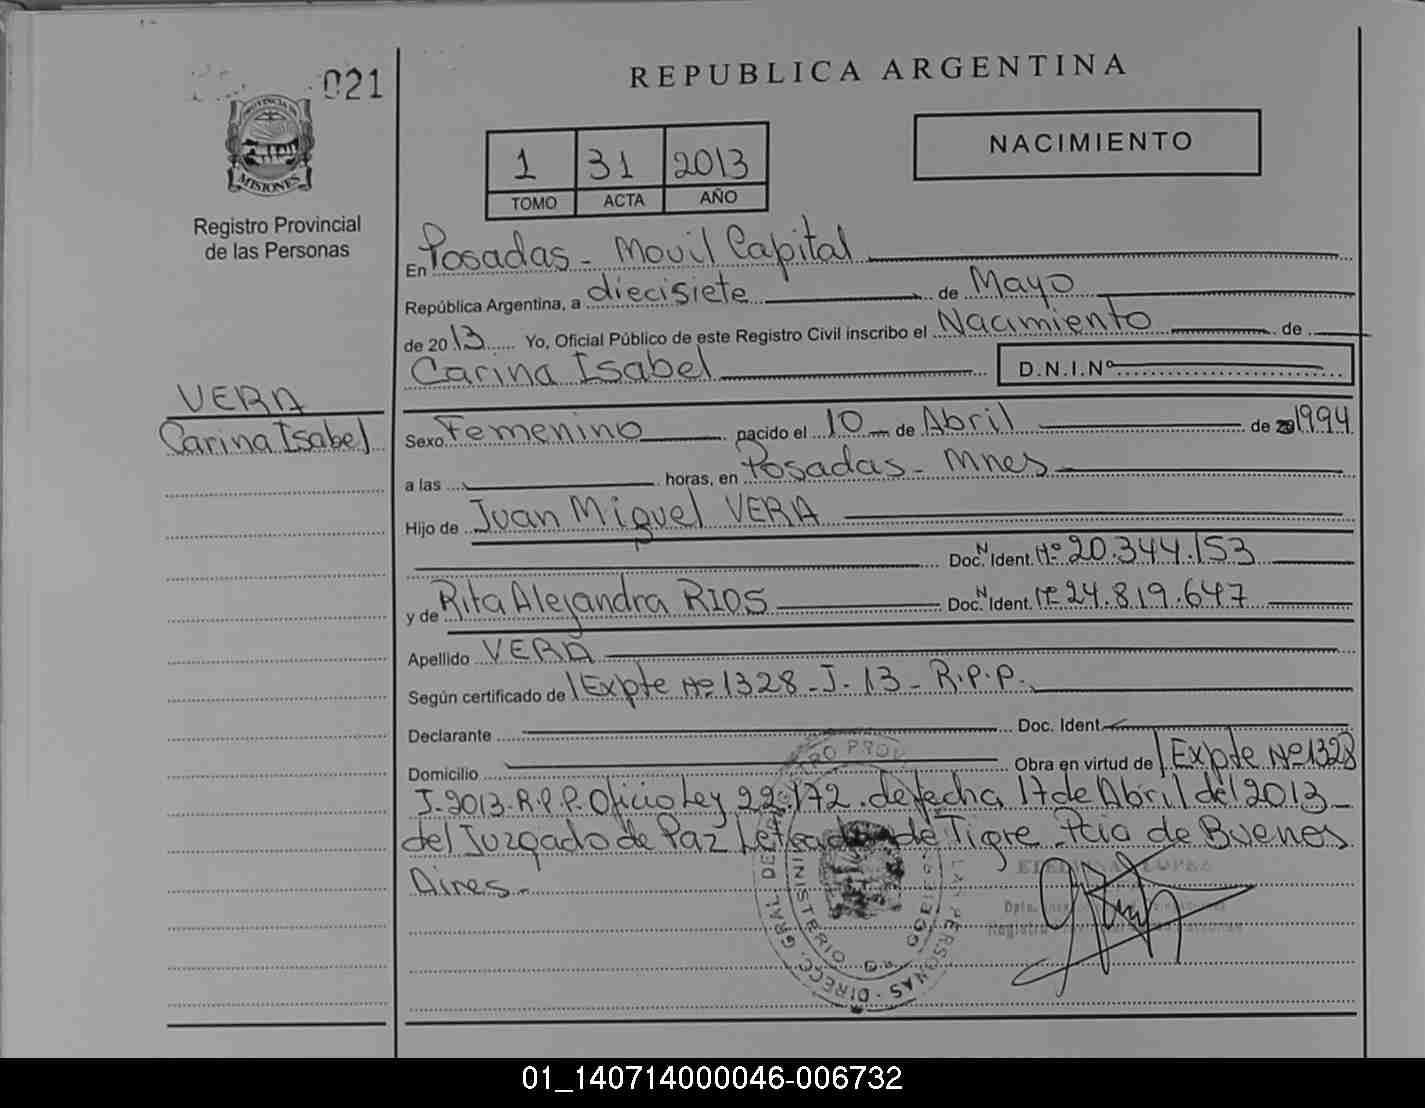 021
PROVINCIA DE
MISIONES
Registro Provincial
de las Personas
VERA
Carina Isabel
REPUBLICA ARGENTINA
1 31 2013
TOMO ACTA AÑO
NACIMIENTO
En Posadas - Movil Capital
República Argentina, a diecisiete de Mayo
de 2013 Yo, Oficial Público de este Registro Civil inscribo el Nacimiento de
Carina Isabel D.N.I.Nº
Sexo Femenino nacido el 10 de Abril de 1994
a las horas, en Posadas - Mnes
Hijo de Juan Miguel VERA
Doc. Ident. Nº 20.344.153
y de Rita Alejandra RIOS Doc. Ident. Nº 24.819.647
Apellido VERA
Según certificado de Expte Nº 1328 - J - 13 - R.P.P.
Declarante Doc. Ident.
Domicilio Obra en virtud de Expte Nº 1328
J-2013-R.P.P. Oficio Ley 22.172 de fecha 17 de Abril del 2013 -
del Juzgado de Paz Letrado de Tigre - Pcia de Buenos
Aires -
DIRECC. GRAL DE LAS PERSONAS
MINISTERIO
01_140714000046-006732